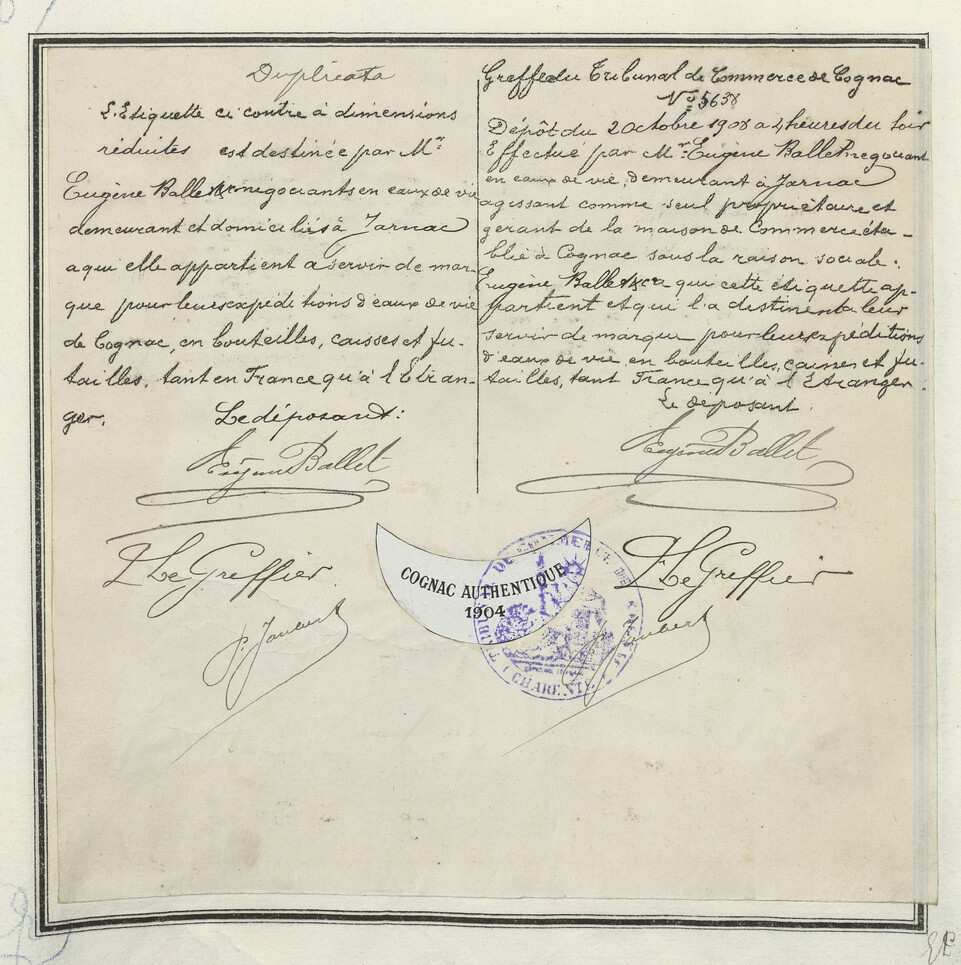 Duplicata
L'Etiquette ci contre à dimensions
réduites est destinée par Mr
Eugène Ballet & Cie négociants en eaux de vie
demeurant et domiciliés à Jarnac
a qui elle appartient a servir de mar-
que pour leurs expéditions d'eaux de vie
de Cognac, en bouteilles, caisses et fu-
tailles, tant en France qu'à l'Etran-
ger. Le déposant:
Eugène Ballet
Le Greffier
Greffe du Tribunal de Commerce de Cognac
No 5638
Dépôt du 2 Octobre 1908 a 4 heures du soir
Effectué par Mr Eugène Ballet negociant
en eaux de vie, demeurant à Jarnac
agissant comme seul propriétaire et
gerant de la maison de Commerce éta-
blie à Cognac sous la raison sociale:
Eugène Ballet & Cie a qui cette étiquette ap-
partient et qui l'a destinent a leur
servir de marque pour leurs expéditions
d'eaux de vie en bouteilles, caisses et fu-
tailles, tant France qu'à l'Etranger.
Le déposant
Eugène Ballet
Le Greffier
COGNAC AUTHENTIQUE
1904
TRIBUNAL DE COMMERCE DE COGNAC
(CHARENTE)